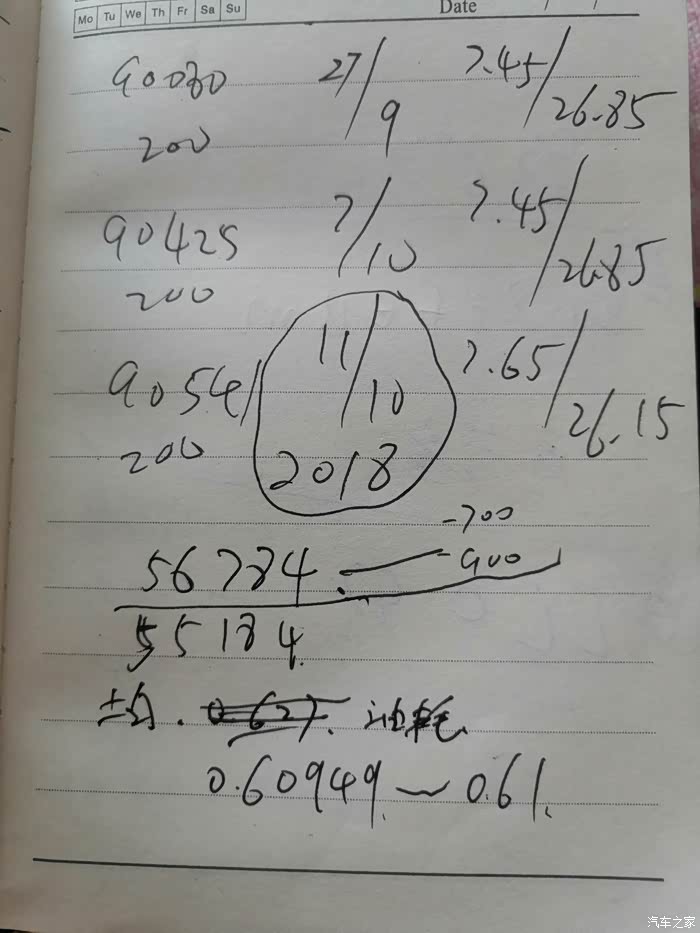 Mo Tu We Th Fr Sa Su Date / /
90080 27/9 7.45/26.85
200
90425 7/10 7.45/26.85
200
90541 11/10 7.65/26.15
200 2018
-700
56784. -900
55184.
均. 0.627. 油耗
0.60949. ~ 0.61.
汽车之家